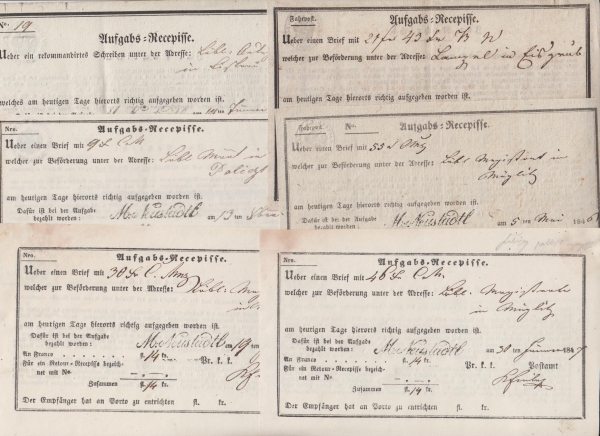 No. 19
Aufgabs=Recepisse.
Ueber ein rekommandirtes Schreiben unter der Adresse: Löbl:
in
welches am heutigen Tage hierorts richtig aufgegeben worden ist.
Fahrpost.
Aufgabs=Recepisse.
Ueber einen Brief mit 21 fr 43 Xr B N
welcher zur Beförderung unter der Adresse: in Eisgrub
am heutigen Tage hierorts richtig aufgegeben worden ist.
Nro.
Aufgabs=Recepisse.
Ueber einen Brief mit 9 f C M
welcher zur Beförderung unter der Adresse: Löbl: in
am heutigen Tage hierorts richtig aufgegeben worden ist.
Dafür ist bei der Aufgabe
bezahlt worden: M:Neustadtl am 13 ten
Fahrpost. No.
Aufgabs=Recepisse.
Ueber einen Brief mit 53
welcher zur Beförderung unter der Adresse: Löbl Magistrat in
Müglitz
am heutigen Tage hierorts richtig aufgegeben worden ist.
Dafür ist bei der Aufgabe
bezahlt worden: M:Neustadtl am 5 ten Mai 1846
Nro.
Aufgabs=Recepisse.
Ueber einen Brief mit 38 C. Mz
welcher zur Beförderung unter der Adresse: Löbl: Mag
in
am heutigen Tage hierorts richtig aufgegeben worden ist.
Dafür ist bei der Aufgabe
bezahlt worden: M:Neustadtl am 19 ten
An Franco . . . . . . . 14
Für ein Retour=Recepisse bezeich=
net mit No Pr. k. k.
Zusammen 14
Der Empfänger hat an Porto zu entrichten fl. kr.
Nro.
Aufgabs=Recepisse.
Ueber einen Brief mit 46 C. M.
welcher zur Beförderung unter der Adresse: Löbl: Magistrat
in Müglitz
am heutigen Tage hierorts richtig aufgegeben worden ist.
Dafür ist bei der Aufgabe
bezahlt worden: M:Neustadtl am 30 ten 1847
An Franco . . . . . . . 14
Für ein Retour=Recepisse bezeich=
net mit No Pr. k. k. Postamt
Zusammen 14
Der Empfänger hat an Porto zu entrichten fl. kr.